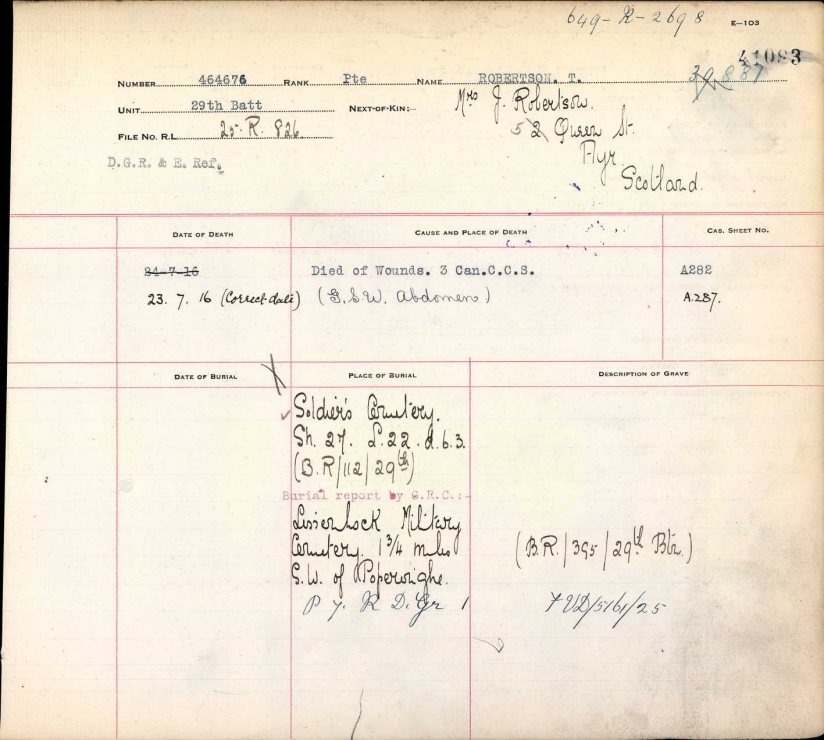 649-R-2698 E-103
41093
NUMBER 464676 RANK Pte NAME ROBERTSON. T. 39887
UNIT 29th Batt NEXT-OF-KIN:- Mrs J. Robertson.
FILE NO. R.L. 25-R. 826. 52 Queen St.
Ayr
D.G.R. & E. Ref. Scotland.
DATE OF DEATH CAUSE AND PLACE OF DEATH CAS. SHEET NO.
24-7-16 Died of Wounds. 3 Can.C.C.S. A282
23. 7. 16 (Correct date) (G.S.W. Abdomen) A.287.
DATE OF BURIAL PLACE OF BURIAL DESCRIPTION OF GRAVE
Soldier's Cemetery.
Sh. 27. L.22.d.6.3.
(B.R/112/29th)
Burial report by G.R.C.:-
Lissenhock Military
Cemetery. 1 3/4 miles (B.R./395/29th Btn.)
S.W. of Poperinghe.
R D. Gr 1 /5161/25